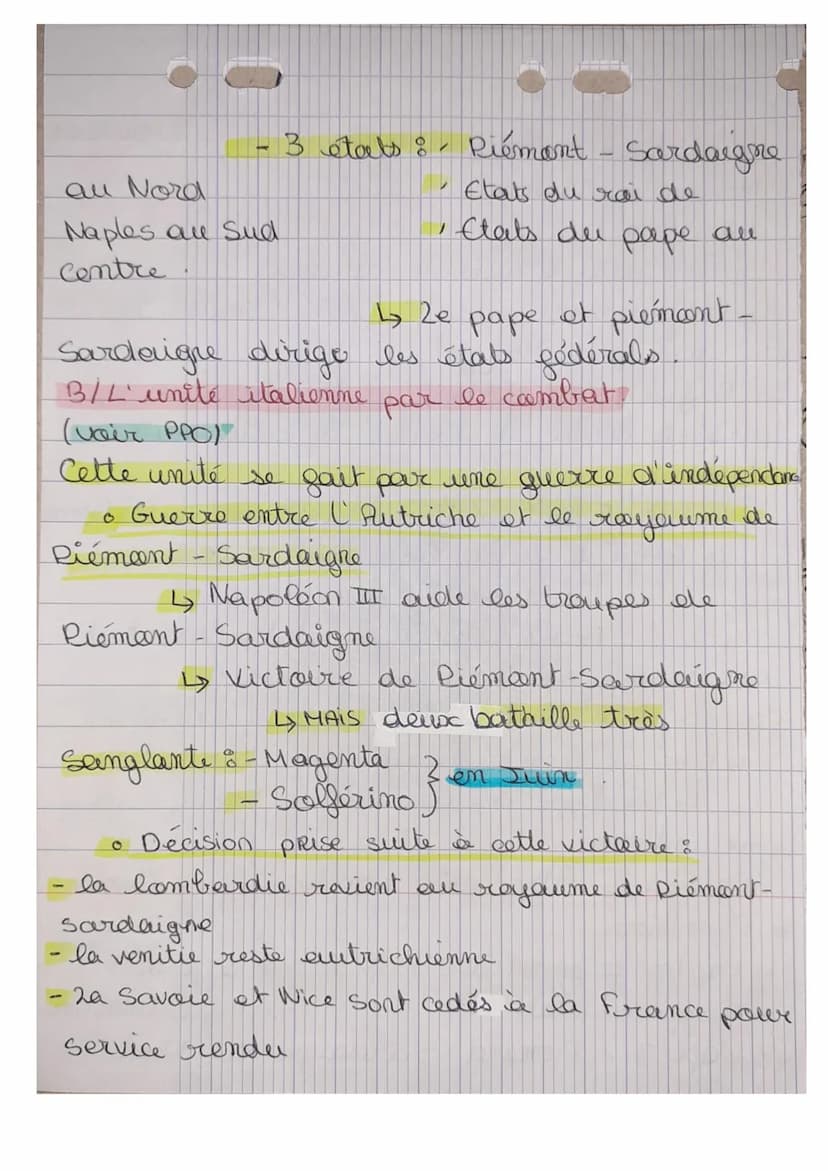 - 3 états : , Piémont - Sardaigne
au Nord , Etats du roi de
Naples au Sud , Etats du pape au
centre .
↳ Le pape et piémont -
Sardaigne dirige les états fédérals.
B/ L'unité italienne par le combat
(voir PPO)
Cette unité se fait par une guerre d'indépendance
o Guerre entre l'Autriche et le royaume de
Piémont - Sardaigne
↳ Napoléon III aide les troupes de
Piémont - Sardaigne
↳ Victoire de Piémont - Sardaigne
↳ MAIS deux bataille très
Sanglante : - Magenta
- Solférino } en Juin
o Décision prise suite à cette victoire :
- la lombardie revient au royaume de Piémont-
Sardaigne
- la venitie reste autrichienne
- La Savoie et Nice sont cedés à la France pour
service rendu